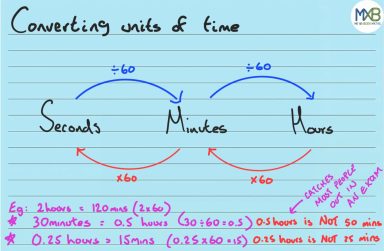 Converting units of time
MXB
÷60 ÷60
Seconds Minutes Hours
x60 x60
CATCHES
MOST PEOPLE
OUT IN
AN EXAM
Eg: 2hours = 120mins (2x60)
* 30minutes = 0.5 hours (30÷60=0.5) 0.5 hours is NOT 50 mins
* 0.25 hours = 15mins (0.25x60=15) 0.25 hours is NOT 25 mins